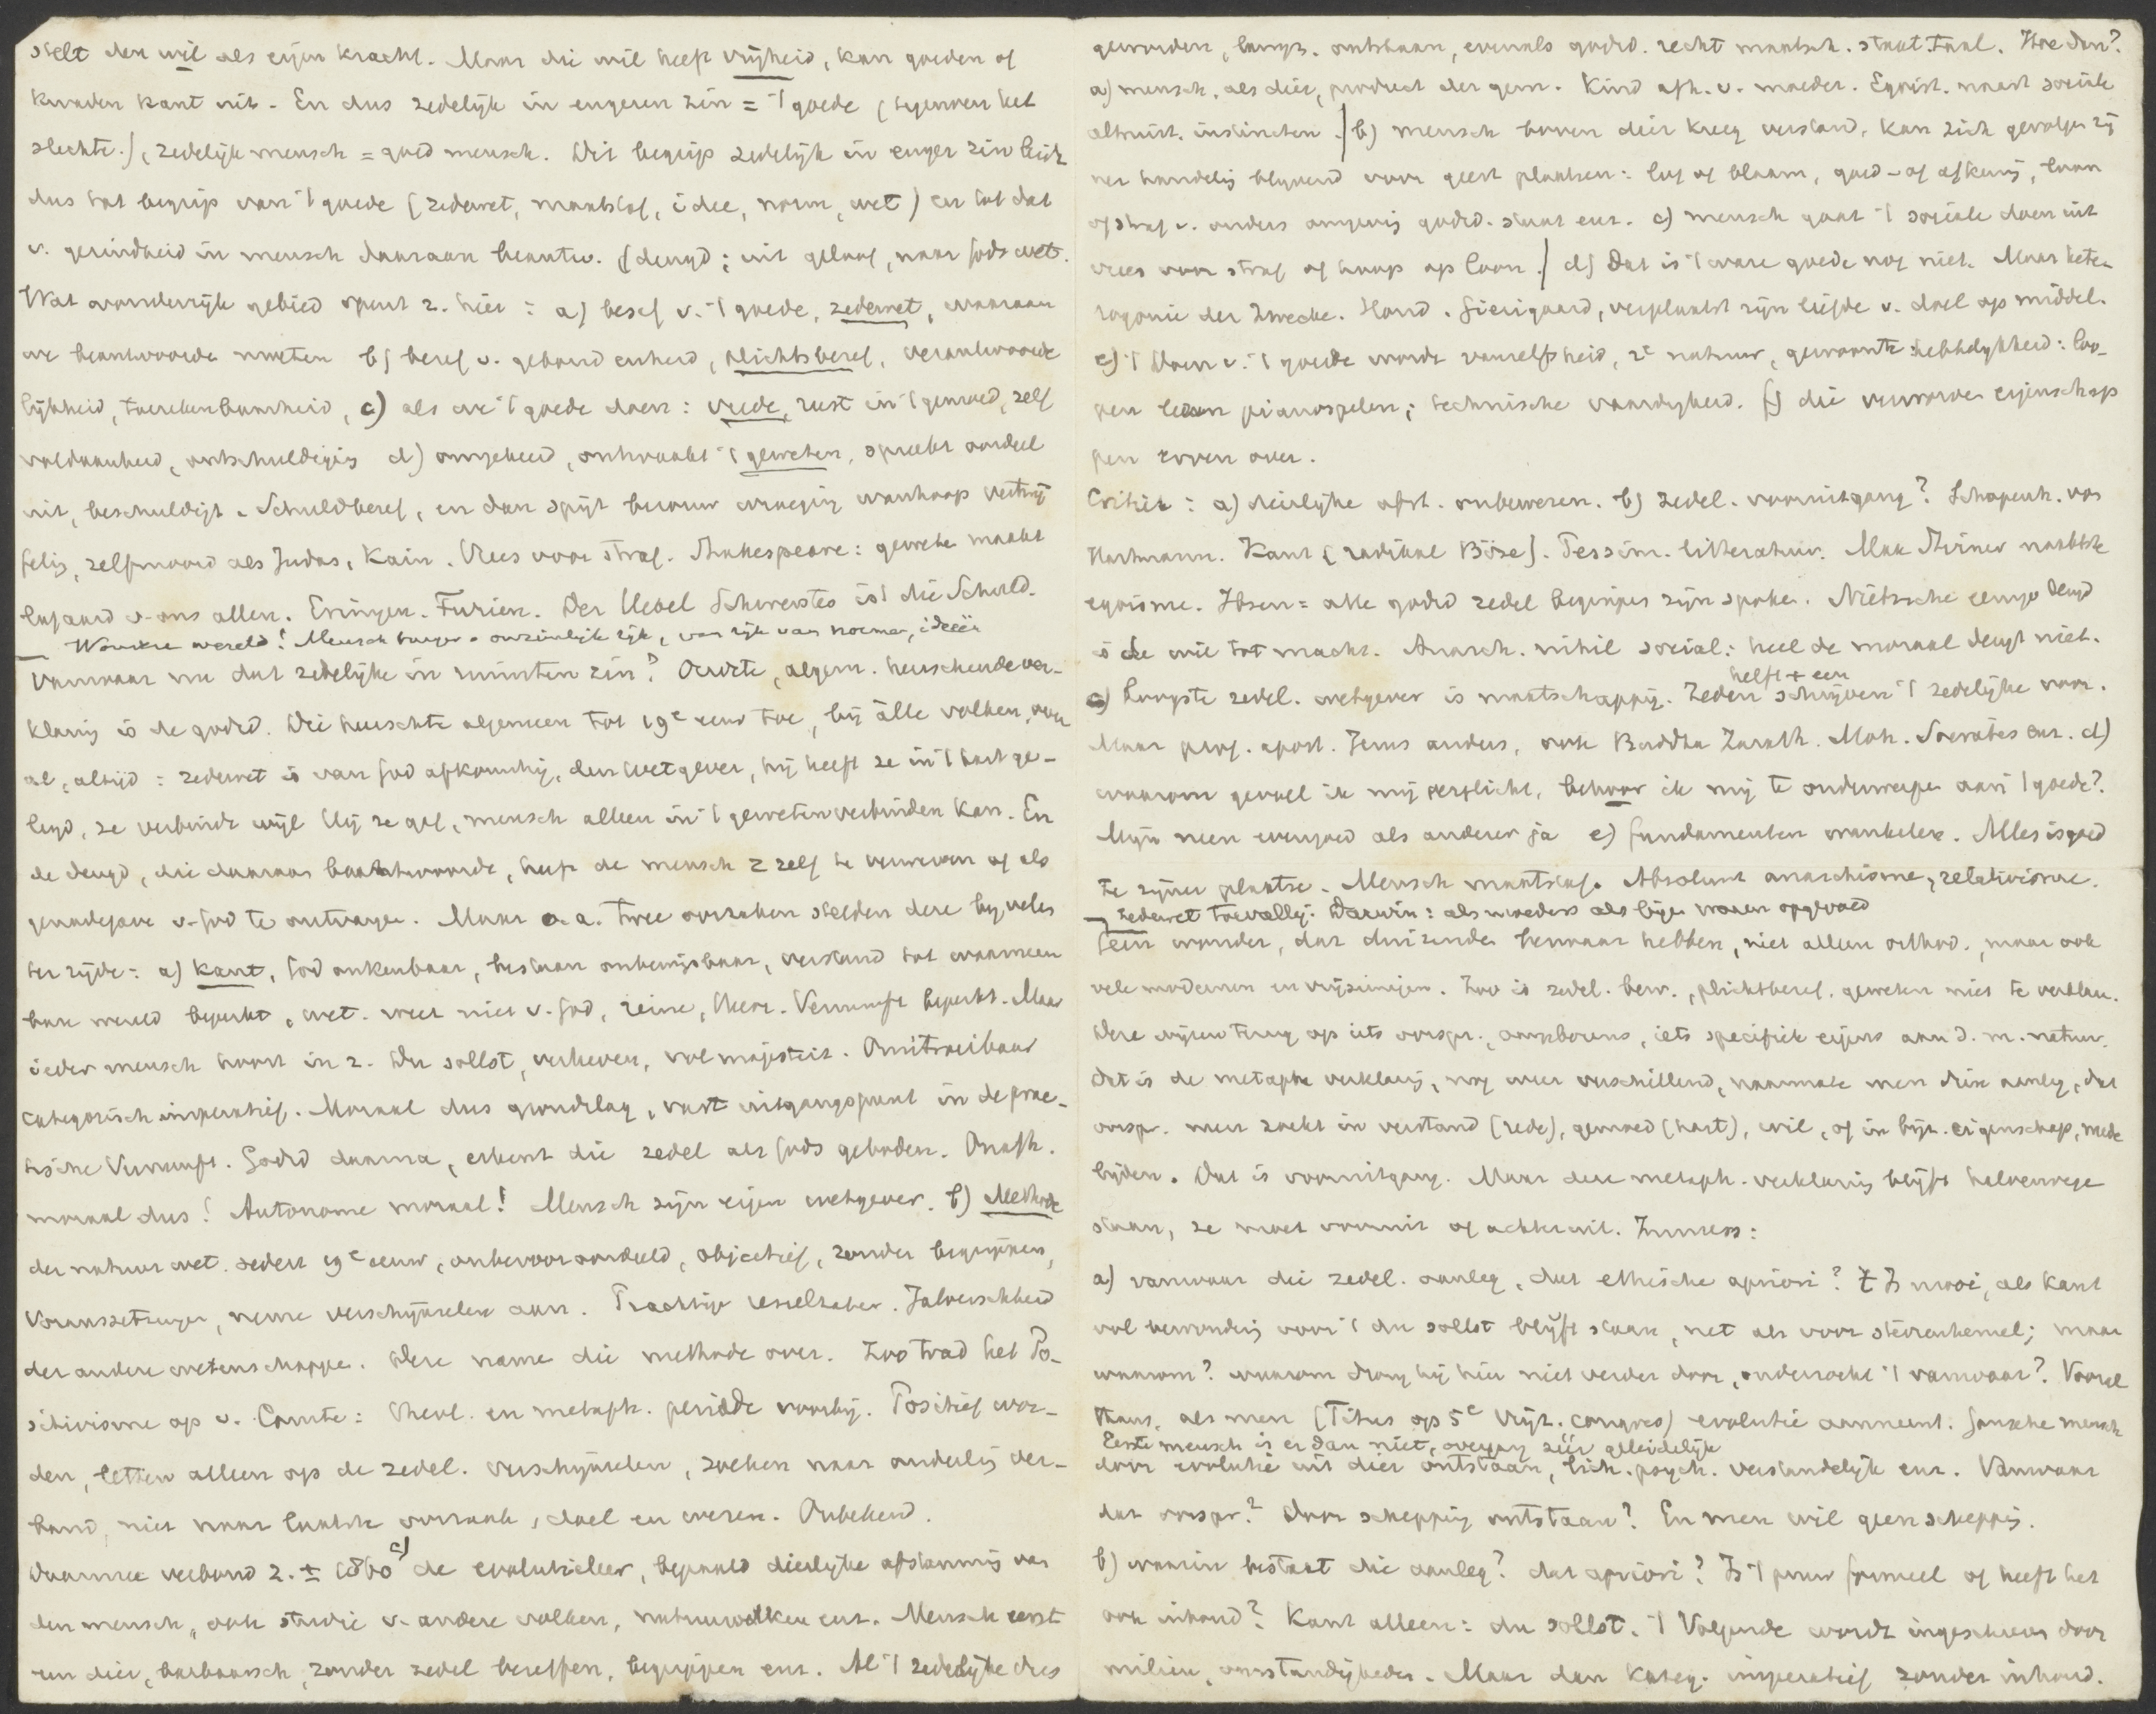 stelt den wil als eigen kracht. Maar die wil heeft vrijheid, kan goeden of
kwaden kant uit. En dus zedelijk in engeren zin = 't goede (tegenover het
slechte), zedelijk mensch = goed mensch. Dit begrip zedelijk in enger zin leidt
dus tot begrip van 't goede (zedewet, maatstaf, idee, norm, wet) en tot dat
v. gezindheid in mensch daaraan beantw. (deugd; uit geloof, naar Gods wet.
Wat wonderlijk gebied opent z. hier: a) besef v. 't goede, zedewet, waaraan
we beantwoorden moeten b) besef v. gebondenheid, plichtsbesef, verantwoorde
lijkheid, toerekenbaarheid, c) als we 't goede doen: vrede, rust in 't gemoed, zelf
voldaanheid, ontschuldiging d) omgekeerd, ontwaakt 't geweten, spreekt oordeel
uit, beschuldigt. Schuldbesef, en dan spijt berouw wroeging wanhoop vertwij
feling, zelfmoord als Judas, Kain. Vrees voor straf. Shakespeare: geweten maakt
lafaard v. ons allen. Erinyen. Furien. Der Uebel Schwerstes ist die Schuld.
Wondere wereld! Mensch burger v. onzienlijk rijk, van rijk van normen, ideeën
Vanwaar nu dat zedelijke in ruimsten zin? Oudste, algem. heerschende ver-
klaring is de godsd. Die heerschte algemeen tot 19e eeuw toe, bij alle volken, over
al, altijd: zedewet is van God afkomstig, den Wetgever, hij heeft ze in 't hart ge-
legd, ze verbindt wijl Hij ze gaf, mensch alleen in 't geweten verbinden kan. En
de deugd, die daaraan beantwoordde, heeft de mensch z zelf te verwerven of als
genadegave v. God te ontvangen. Maar o.a. twee oorzaken stelden deze bij velen
ter zijde: a) Kant, God onkenbaar, bestaan onbewijsbaar, verstand tot waarneem
bare wereld beperkt, wet. weet niet v. God, reine, theor. Vernunft beperkt. Maar
ieder mensch hoort in z. Du sollst, verheven, vol majesteit. Onuitroeibaar
categorisch imperatief. Moraal dus grondslag, vast uitgangspunt in de prac-
tische Vernunft. Godsd daarna, erkent die zedel als Gods geboden. Onafh.
moraal dus! Autonome moraal! Mensch zijn eigen wetgever. b) Methode
der natuurwet. sedert 19e eeuw, onbevooroordeeld, objectief, zonder begrippen,
Voraussetzungen, neme verschijnselen aan. Prachtige resultaten. Jaloerschheid
der andere wetenschappen. Deze namen die methode over. Zoo trad het Po-
sitivisme op v. Comte: theol. en metaph. periode voorbij. Positief wor-
den, letten alleen op de zedel. verschijnselen, zoeken naar onderling ver-
band, niet naar laatste oorzaak, doel en wezen. Onbekend.
Daarmee verbond z. ± 1860 c) de evolutieleer, bepaald dierlijke afstamming van
den mensch, ook studie v. andere volken, natuurvolken enz. Mensch eerst
een dier, barbaarsch, zonder zedel beseffen, begrippen enz. Al 't zedelijke dus
geworden, langz. ontstaan, evenals godsd. recht maatsch. staat. taal. Hoe dan?
a) mensch, als dier, product der gem. Kind afh. v. moeder. Egoist. naast sociale
altruist. instincten. b) mensch boven dier kreeg verstand, kan zich gevolgen zij
ner handeling blijvend voor geest plaatsen: lof of blaam, goed- of afkeuring, loon
of straf v. anders omgeving godsd. staat enz. c) mensch gaat 't sociale doen uit
vrees voor straf of hoop op loon. d) Dat is 't ware goede nog niet. Maar hete-
rogonie der Zwecke. Hond. Gierigaard, verplaatst zijn liefde v. doel op middel.
e) 't Doen v. 't goede wordt vanzelfsheid, 2e natuur, gewoonte: hebbelijkheid: loo-
pen lezen pianospelen; technische vaardigheid. f) die verworven eigenschap
pen erven over.
Critiek: a) dierlijke afst. onbewezen. b) zedel. vooruitgang? Schopenh. von
Hartmann. Kant (radikal Böse). Pessim. litteratuur. Max Stirner naaktste
egoisme. Ibsen = alle godsd zedel begrippen zijn spoken. Nietzsche eenige deugd
is de wil tot macht. Anarch. nihil social: heel de moraal deugt niet.
helft + een
c) Hoogste zedel. wetgever is maatschappij. Zeden schrijven 't zedelijke voor.
Maar prof. apost. Jezus anders, ook Buddha Zarath. Moh. Socrates enz. d)
waarom gevoel ik mij verplicht, behoor ik mij te onderwerpen aan 't goede?
Mijn neen evengoed als anderer ja e) fundamenten wankelen. Alles is goed
te zijner plaatse. Mensch maatstaf. Absoluut anarchisme, relativisme.
zedewet toevallig. Darwin: als moeders als bijen waren opgevoed
Geen wonder, dat duizenden bezwaar hebben, niet alleen orthod., maar ook
vele modernen en vrijzinnigen. Zoo is zedel. bew., plichtsbesef, geweten niet te verklar.
Deze wijzen terug op iets oorspr., aangeborens, iets specifiek eigens aan d. m. natuur.
Dat is de metaph verklaring, nog weer verschillend, naarmate men dien aanleg, dat
oorspr. meer zoekt in verstand (rede), gemoed (hart), wil, of in bijz. eigenschap, mede
lijden. Dat is vooruitgang. Maar deze metaph. verklaring blijft halverwege
staan, ze moet vooruit of achteruit. Immers:
a) vanwaar die zedel. aanleg, dat ethische apriori? 't Is mooi, als Kant
vol bewondering voor 't du sollst blijft staan, net als voor sterrenhemel; maar
waarom? waarom drong hij hier niet verder door, onderzocht 't vanwaar? Vooral
thans, als men (Titus op 5e Vrijz. congres) evolutie aanneemt. Gansche mensch
Eerste mensch is er dan niet, overgang zeer geleidelijk
door evolutie uit dier ontstaan, lich. psych. verstandelijk enz. Vanwaar
dat oorspr.? Door schepping ontstaan? En men wil geen schepping.
b) waarin bestaat die aanleg? dat apriori? Is 't puur formeel of heeft het
ook inhoud? Kant alleen: du sollst. 't Volgende wordt ingeschreven door
milieu, omstandigheden. Maar dan kateg. imperatief zonder inhoud.